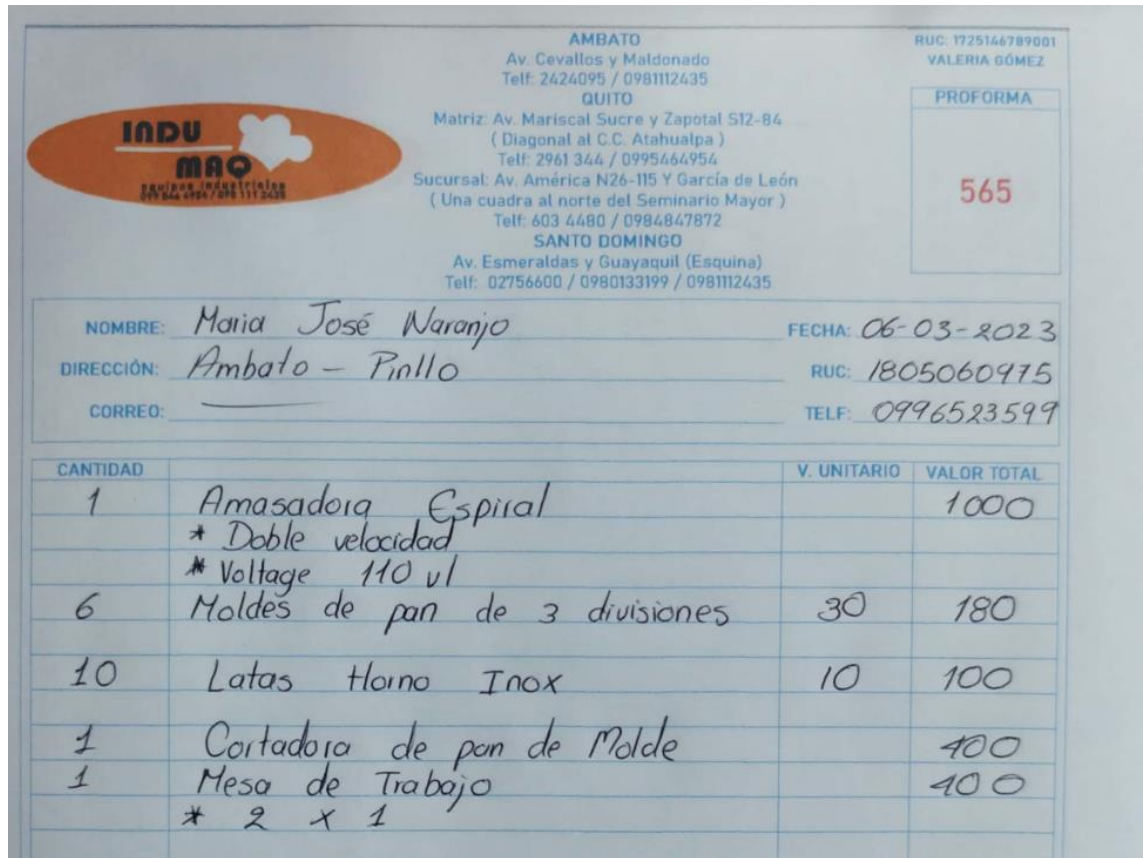 INDU
MAQ
equipos industriales
AMBATO
Av. Cevallos y Maldonado
Telf: 2424095 / 0981112435
QUITO
Matriz: Av. Mariscal Sucre y Zapotal S12-84
( Diagonal al C.C. Atahualpa )
Telf: 2961 344 / 0995464954
Sucursal: Av. América N26-115 Y García de León
( Una cuadra al norte del Seminario Mayor )
Telf: 603 4480 / 0984847872
SANTO DOMINGO
Av. Esmeraldas y Guayaquil (Esquina)
Telf: 02756600 / 0980133199 / 0981112435
RUC: 1725146789001
VALERIA GÓMEZ
PROFORMA
565
NOMBRE: Maria José Naranjo FECHA: 06-03-2023
DIRECCIÓN: Ambato - Pinllo RUC: 1805060975
CORREO: TELF: 0996523599
CANTIDAD V. UNITARIO VALOR TOTAL
1 Amasadora Espiral 1000
* Doble velocidad
* Voltage 110 vl
6 Moldes de pan de 3 divisiones 30 180
10 Latas Horno Inox 10 100
1 Cortadora de pan de Molde 400
1 Mesa de Trabajo 400
* 2 x 1